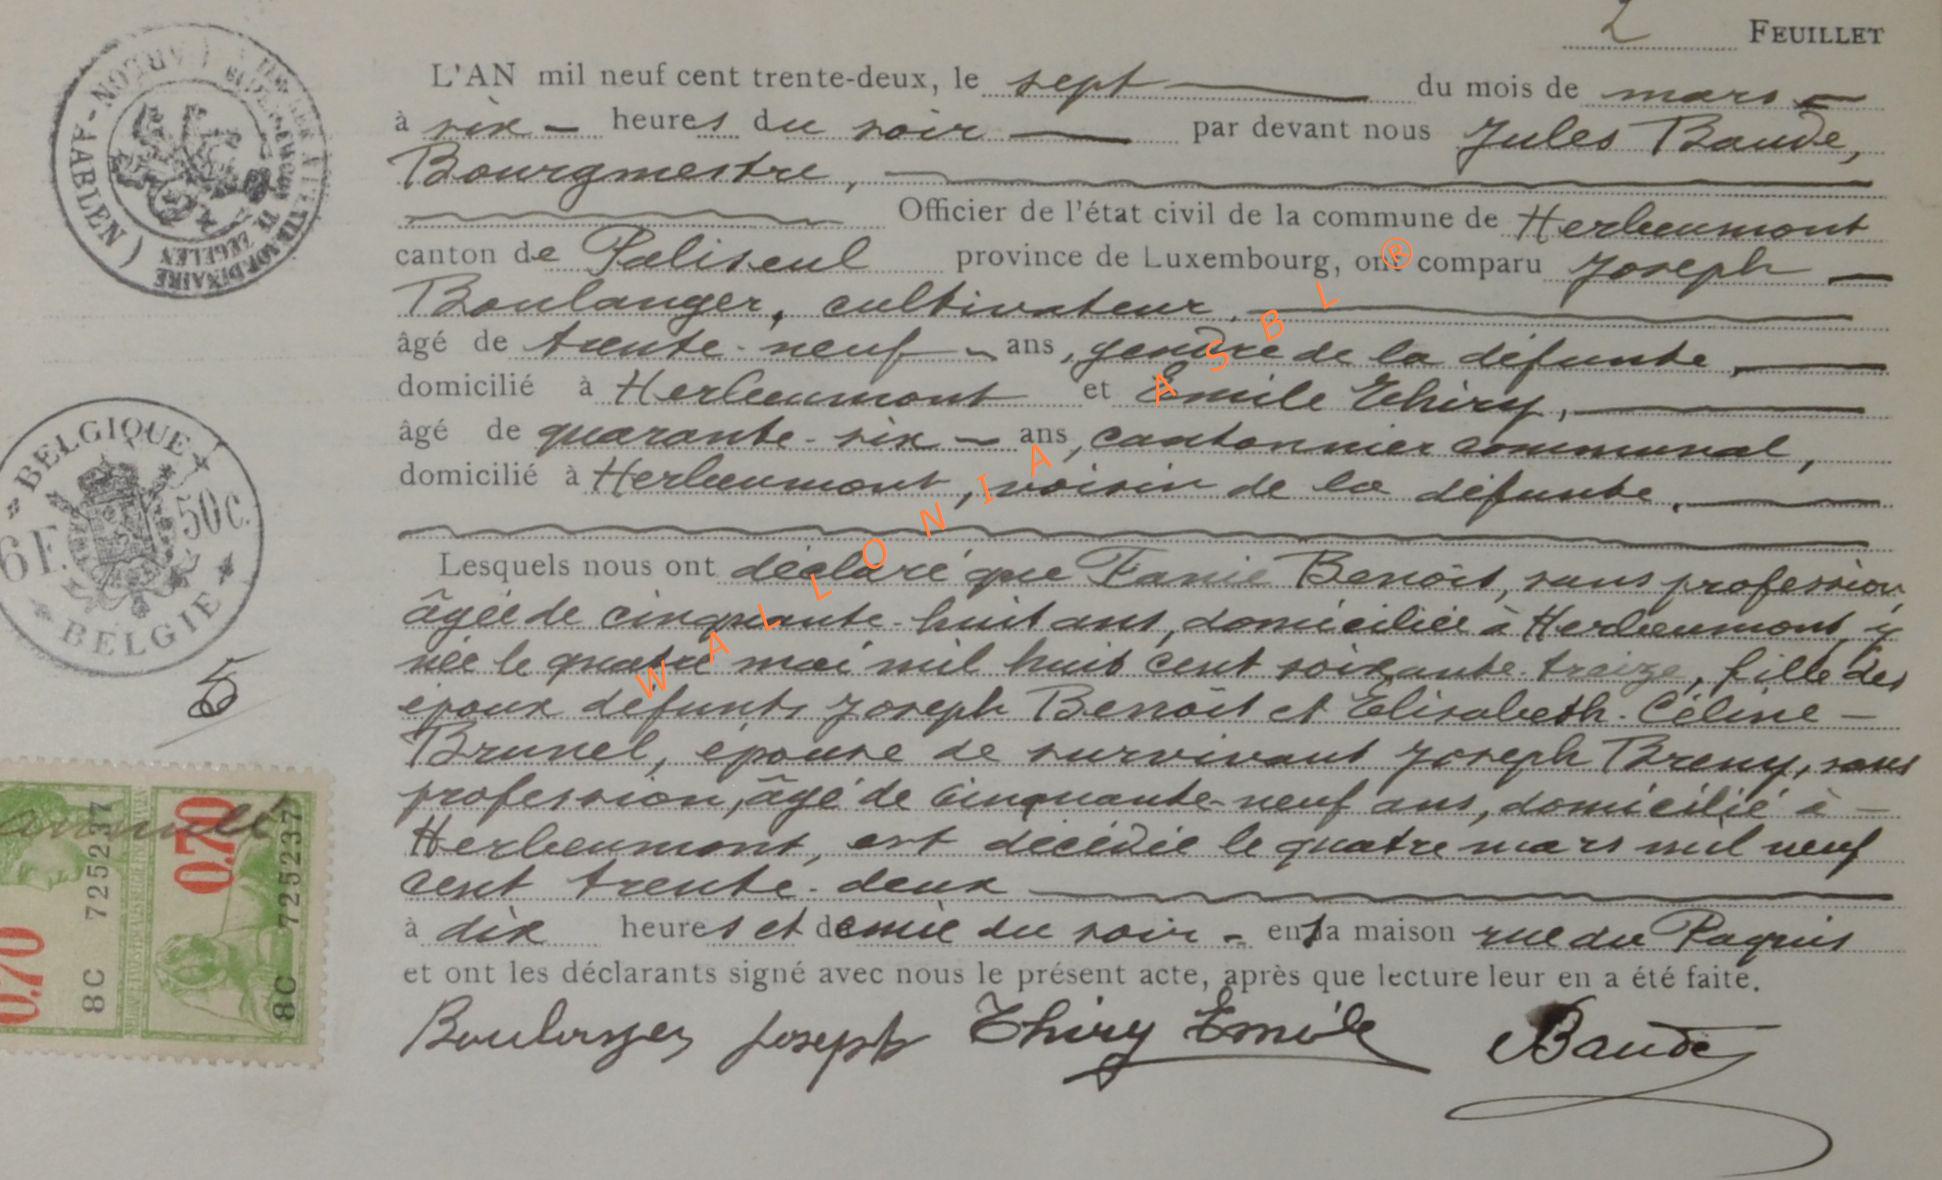 2 FEUILLET
L'AN mil neuf cent trente-deux, le sept du mois de mars
à six heures du soir par devant nous Jules Baude,
Bourgmestre,
Officier de l'état civil de la commune de Herbeumont
canton de Paliseul province de Luxembourg, ont comparu Joseph
Boulanger, cultivateur,
âgé de trente-neuf ans, gendre de la défunte,
domicilié à Herbeumont et Emile Thiry,
âgé de quarante-six ans, cantonnier communal,
domicilié à Herbeumont, voisin de la défunte,
Lesquels nous ont déclaré que Fanie Benoît, sans profession
âgée de cinquante-huit ans, domiciliée à Herbeumont, y
née le quatre mai mil huit cent soixante-treize, fille des
époux défunts Joseph Benoît et Elisabeth-Céline
Brunel, épouse de survivant Joseph Breny, sans
profession, âgé de cinquante-neuf ans, domicilié à
Herbeumont, est décédée le quatre mars mil neuf
cent trente-deux
à dix heures et demie du soir en sa maison rue du Paquis
et ont les déclarants signé avec nous le présent acte, après que lecture leur en a été faite.
Boulanger Joseph Thiry Emile Baude
(ARLON-AARLEN)
TE ZEGELEN
BELGIQUE
6 F. 50 c.
BELGIE
5
0.70 8C 725237
0.70 8C 725237
WALLONIA ASBL ®